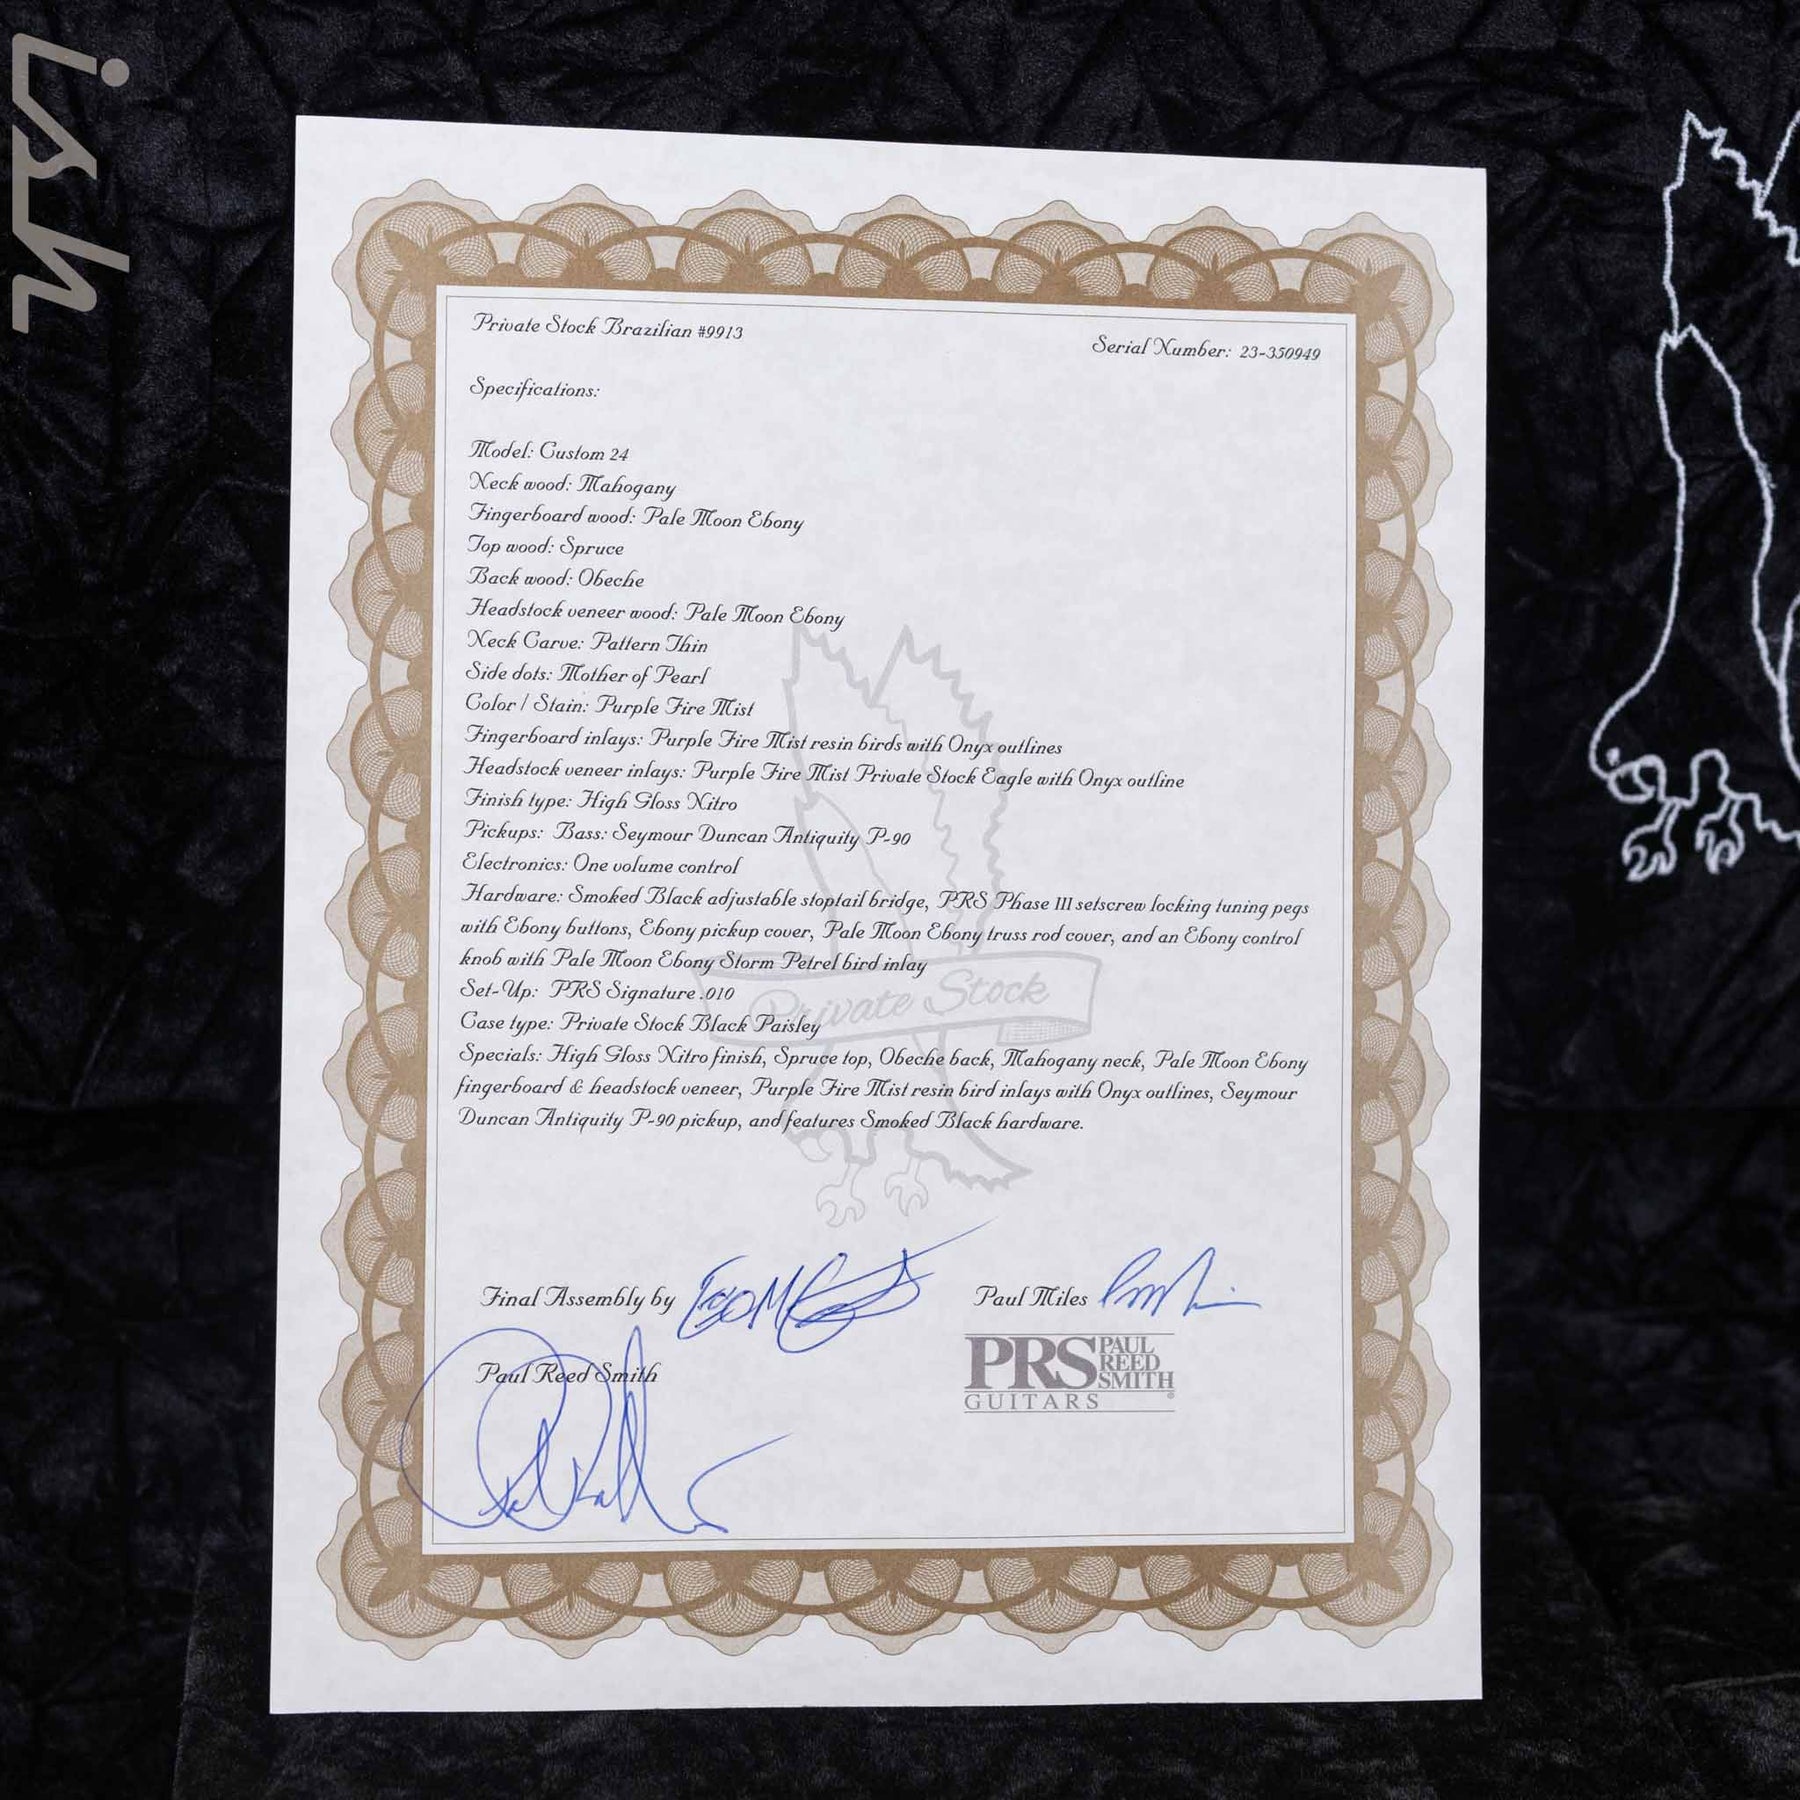 ish
Private Stock Brazilian #9913
Serial Number: 23-350949
Specifications:
Model: Custom 24
Neck wood: Mahogany
Fingerboard wood: Pale Moon Ebony
Top wood: Spruce
Back wood: Obeche
Headstock veneer wood: Pale Moon Ebony
Neck Carve: Pattern Thin
Side dots: Mother of Pearl
Color / Stain: Purple Fire Mist
Fingerboard inlays: Purple Fire Mist resin birds with Onyx outlines
Headstock veneer inlays: Purple Fire Mist Private Stock Eagle with Onyx outline
Finish type: High Gloss Nitro
Pickups: Bass: Seymour Duncan Antiquity P-90
Electronics: One volume control
Hardware: Smoked Black adjustable stoptail bridge, PRS Phase III setscrew locking tuning pegs
with Ebony buttons, Ebony pickup cover, Pale Moon Ebony truss rod cover, and an Ebony control
knob with Pale Moon Ebony Storm Petrel bird inlay
Set-Up: PRS Signature .010
Private Stock
Case type: Private Stock Black Paisley
Specials: High Gloss Nitro finish, Spruce top, Obeche back, Mahogany neck, Pale Moon Ebony
fingerboard & headstock veneer, Purple Fire Mist resin bird inlays with Onyx outlines, Seymour
Duncan Antiquity P-90 pickup, and features Smoked Black hardware.
Final Assembly by
Paul Miles
Paul Reed Smith
PRS PAUL REED SMITH
GUITARS